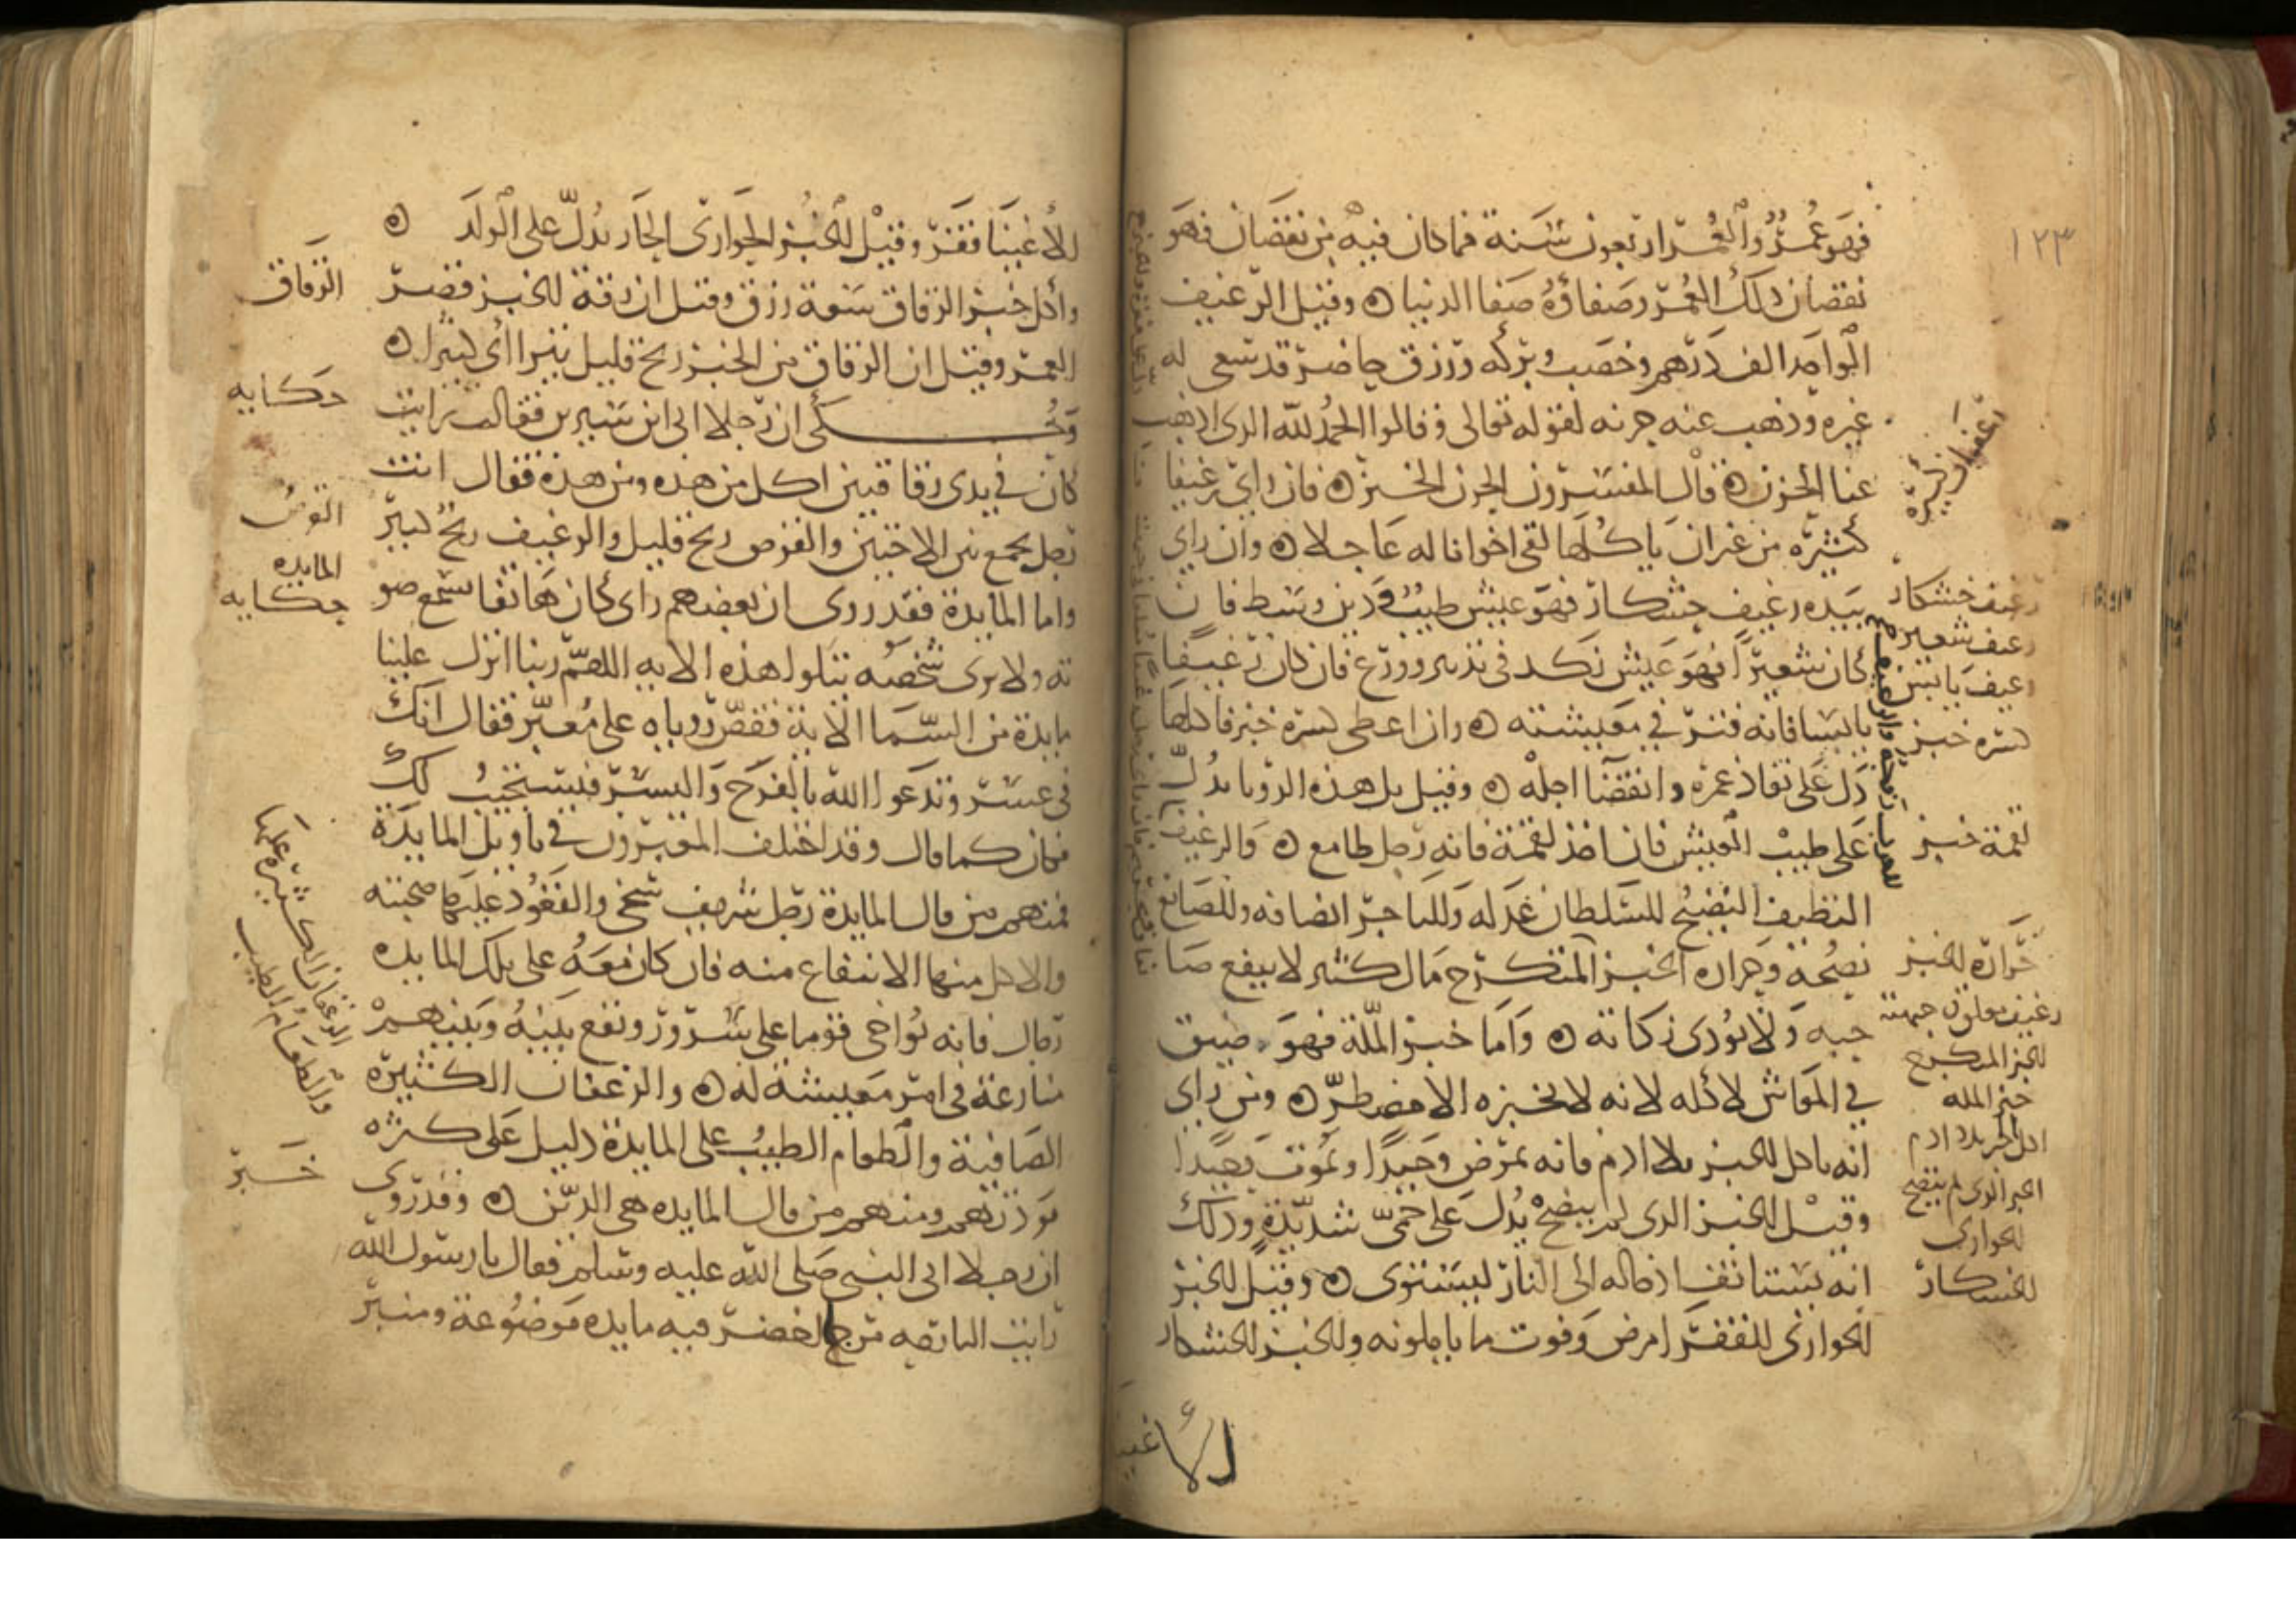 ١٢٣
فهو عمر والعمر اربعون سنة فما كان فيه من نقصان فهو
نقصان ذلك العمر وصفاؤه صفا الدنيا ه وقيل الرغيف
الواحد الف درهم وخصب وبركه ورزق حاضر قد سعى له
غيره وذهب عنه حزنه لقوله تعالى وقالوا الحمد لله الذى اذهب
عنا الحزن ه قال المفسرون الحزن الخبز ه فان راى رغيفا
كثيره من غير ان ياكلها لقى اخوانا له عاجلا ه وان راى
بيده رغيف خشكار فهو عيش طيب ودين وسط فان
كان شعيرا فهو عيش نكد فى تدبير وورع فان كان رغيفا
يابسا فانه قتر في معيشته ه وان اعطى كسرة خبز فاكلها
دل على نفاذ عمره وانقضآ اجله ه وقيل بل هذه الرويا تدل
على طيب العيش فان اخذ لقمة فانه رجل طامع ه والرغيف
النظيف النضيج للسلطان عدله وللتاجر انصافه وللصانع
نصحه وحرارة الخبز المتكرج مال كثير لا ينفع صا
حبه ولا يودى زكاته ه واما خبز الملة فهو ضيق
في المعاش لاكله لانه لا يخبزه الا مضطر ه ومن راى
انه ياكل الخبز بلا ادم فانه يمرض وحيدا ويموت وحيدا
وقيل الخبز الذى لم ينضج يدل على حمى شديدة وذلك
انه يستانف ادخاله الى النار ليستوى ه وقيل الخبز
الحوارى للفقرا مرض وفوت ما ياملونه والخبز الخشكار
ارغفة كثيرة
رغيف خشكار
رغيف شعير
رغيف يابس
كسره خبز
لقمة خبز
حرارة الخبز
رغيف معلق جبهته
الخبز المتكرج
خبز المله
اكل الخبز بلا ادم
الخبز الذى لم ينضج
الحوارى
الخشكار
الأغنيا
للأغنيا فقر وقيل الخبز الحوارى الحار يدل على الولد ه
واكل خبز الرقاق سعة رزق وقيل ان رقة الخبز قصر
العمر وقيل ان الرقاق من الخبز ربح قليل يترااى كبيرا ه
وحكى ان رجلا اتى ابن سيرين فقال رايت
كان في يدى رقاقتين اكل من هذه ومن هذه فقال انت
رجل تجمع بين الاختين والقرص ربح قليل والرغيف ربح كبير
واما المايدة فقد روى ان بعضهم راى كان هاتفا سمع صو
ته ولا يرى شخصه يتلوا هذه الايه اللهم ربنا انزل علينا
مايدة من السما الاية فقص روياه على معبر فقال انك
فى عسر وتدعوا الله بالفرج واليسر فيستجيب لك
فكان كما قال وقد اختلف المعبرون في تاويل المايدة
فمنهم من قال المايدة رجل شريف سخى والقعود عليها صحبته
والاكل منها الانتفاع منه فان كان معه على تلك المايده
رجال فانه يواخى قوما على سرور ونفع بينه وبينهم
منازعة فى امر معيشة له ه والرغفان الكثيرة
الصافية والطعام الطيب على المايدة دليل على كثره
مودتهم ومنهم من قال المايده هى الدين ه وقد روى
ان رجلا اتى النبى صلى الله عليه وسلم فقال يا رسول الله
رايت البارحه مرجا اخضر فيه مايده موضوعة ومنبر
الرقاق
حكايه
القرص
المايده
حكايه
الرغفان الكثيرة عليها
والطعام الطيب
خبر